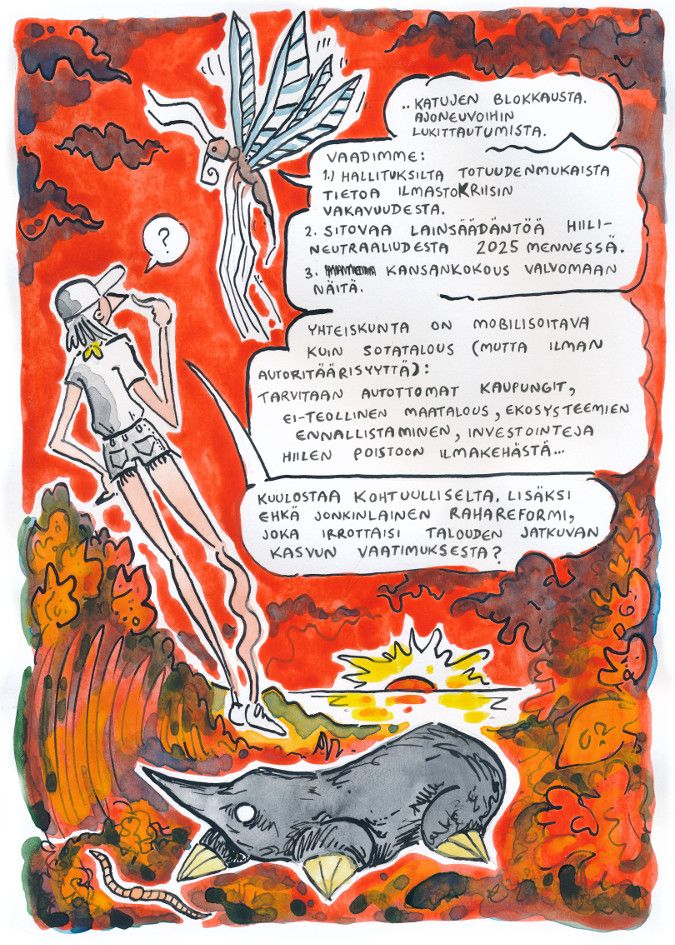 ?
..KATUJEN BLOKKAUSTA.
AJONEUVOIHIN
LUKITTAUTUMISTA.
VAADIMME:
1.) HALLITUKSILTA TOTUUDENMUKAISTA
TIETOA ILMASTOKRIISIN
VAKAVUUDESTA.
2. SITOVAA LAINSÄÄDÄNTÖÄ HIILI-
NEUTRAALIUDESTA 2025 MENNESSÄ.
3. KANSANKOKOUS VALVOMAAN
NÄITÄ.
YHTEISKUNTA ON MOBILISOITAVA
KUIN SOTATALOUS (MUTTA ILMAN
AUTORITÄÄRISYYTTÄ):
TARVITAAN AUTOTTOMAT KAUPUNGIT,
EI-TEOLLINEN MAATALOUS, EKOSYSTEEMIEN
ENNALLISTAMINEN, INVESTOINTEJA
HIILEN POISTOON ILMAKEHÄSTÄ...
KUULOSTAA KOHTUULLISELTA. LISÄKSI
EHKÄ JONKINLAINEN RAHAREFORMI,
JOKA IRROTTAISI TALOUDEN JATKUVAN
KASVUN VAATIMUKSESTA?